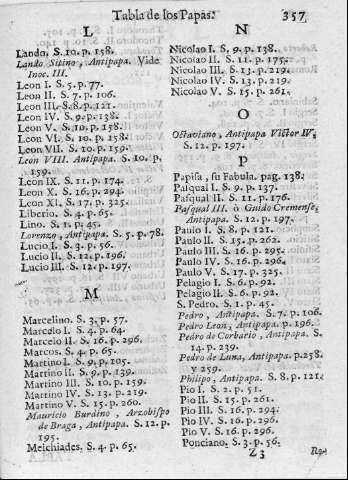 Tabla de los Papas.
357
L
Lando. S. 10. p. 158.
Lando Sitino, Antipapa. Vide
Inoc. III.
Leon I. S. 5. p. 77.
Leon II. S. 7. p. 106.
Leon III. S. 8. p. 121.
Leon IV. S. 9. p. 138.
Leon V. S. 10. p. 158.
Leon VI. S. 10. p. 158.
Leon VII. S. 10. p. 159.
Leon VIII. Antipapa. S. 10. p.
159.
Leon IX. S. 11. p. 174.
Leon X. S. 16. p. 294.
Leon XI. S. 17. p. 325.
Liberio. S. 4. p. 65.
Lino. S. 1. p. 45.
Lorenzo, Antipapa. S. 5. p. 78.
Lucio I. S. 3. p. 56.
Lucio II. S. 12. p. 196.
Lucio III. S. 12. p. 197.
M
Marcelino. S. 3. p. 57.
Marcelo I. S. 4. p. 64.
Marcelo II. S. 16. p. 296.
Marcos. S. 4. p. 65.
Martino I. S. 9. p. 105.
Martino II. S. 9. p. 139.
Martino III. S. 10. p. 159.
Martino IV. S. 13. p. 219.
Martino V. S. 15. p. 260.
Mauricio Burdino, Arzobispo
de Braga, Antipapa. S. 12. p.
195.
Melchiades. S. 4. p. 65.
N
Nicolao I. S. 9. p. 138.
Nicolao II. S. 11. p. 175.
Nicolao III. S. 13. p. 219.
Nicolao IV. S. 13. p. 219.
Nicolao V. S. 15. p. 261.
O
Octaviano, Antipapa Victor IV.
S. 12. p. 197.
P
Papisa, su Fabula. pag. 138.
Pasqual I. S. 9. p. 137.
Pasqual II. S. 11. p. 176.
Pasqual III. ò Guido Cremense,
Antipapa. S. 12. p. 197.
Paulo I. S. 8. p. 121.
Paulo II. S. 15. p. 262.
Paulo III. S. 16. p. 295.
Paulo IV. S. 16. p. 296.
Paulo V. S. 17. p. 325.
Pelagio I. S. 6. p. 92.
Pelagio II. S. 6. p. 92.
S. Pedro. S. 1. p. 45.
Pedro, Antipapa. S. 7. p. 106.
Pedro Leon, Antipapa. p. 196.
Pedro de Corbario, Antipapa. S.
14. p. 239.
Pedro de Luna, Antipapa. p. 258.
y 259.
Philipo, Antipapa. S. 8. p. 121.
Pio I. S. 2. p. 51.
Pio II. S. 15. p. 261.
Pio III. S. 16. p. 294.
Pio IV. S. 16. p. 296.
Pio V. S. 16. p. 296.
Ponciano. S. 3. p. 56.
Z 3